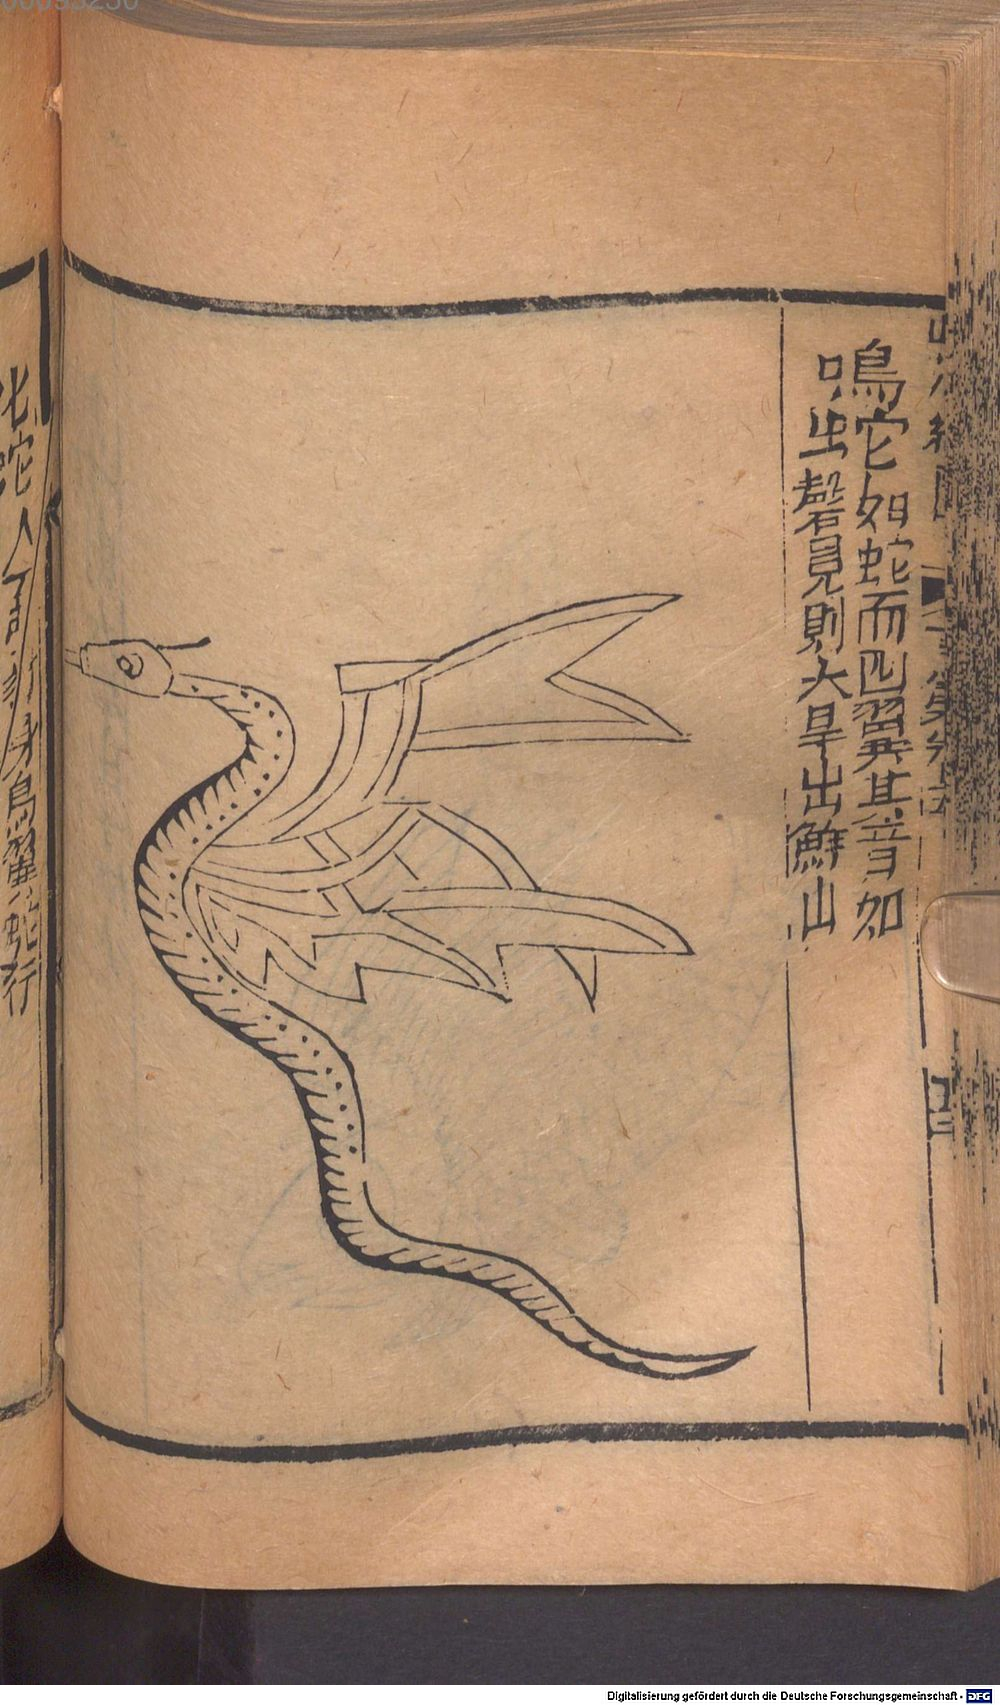 鳴它如蛇而四翼其音如
鳴虫磬見則大旱出鮮山
化蛇人面豺身鳥翼蛇行
00095250
Digitalisierung gefördert durch die Deutsche Forschungsgemeinschaft - DFG